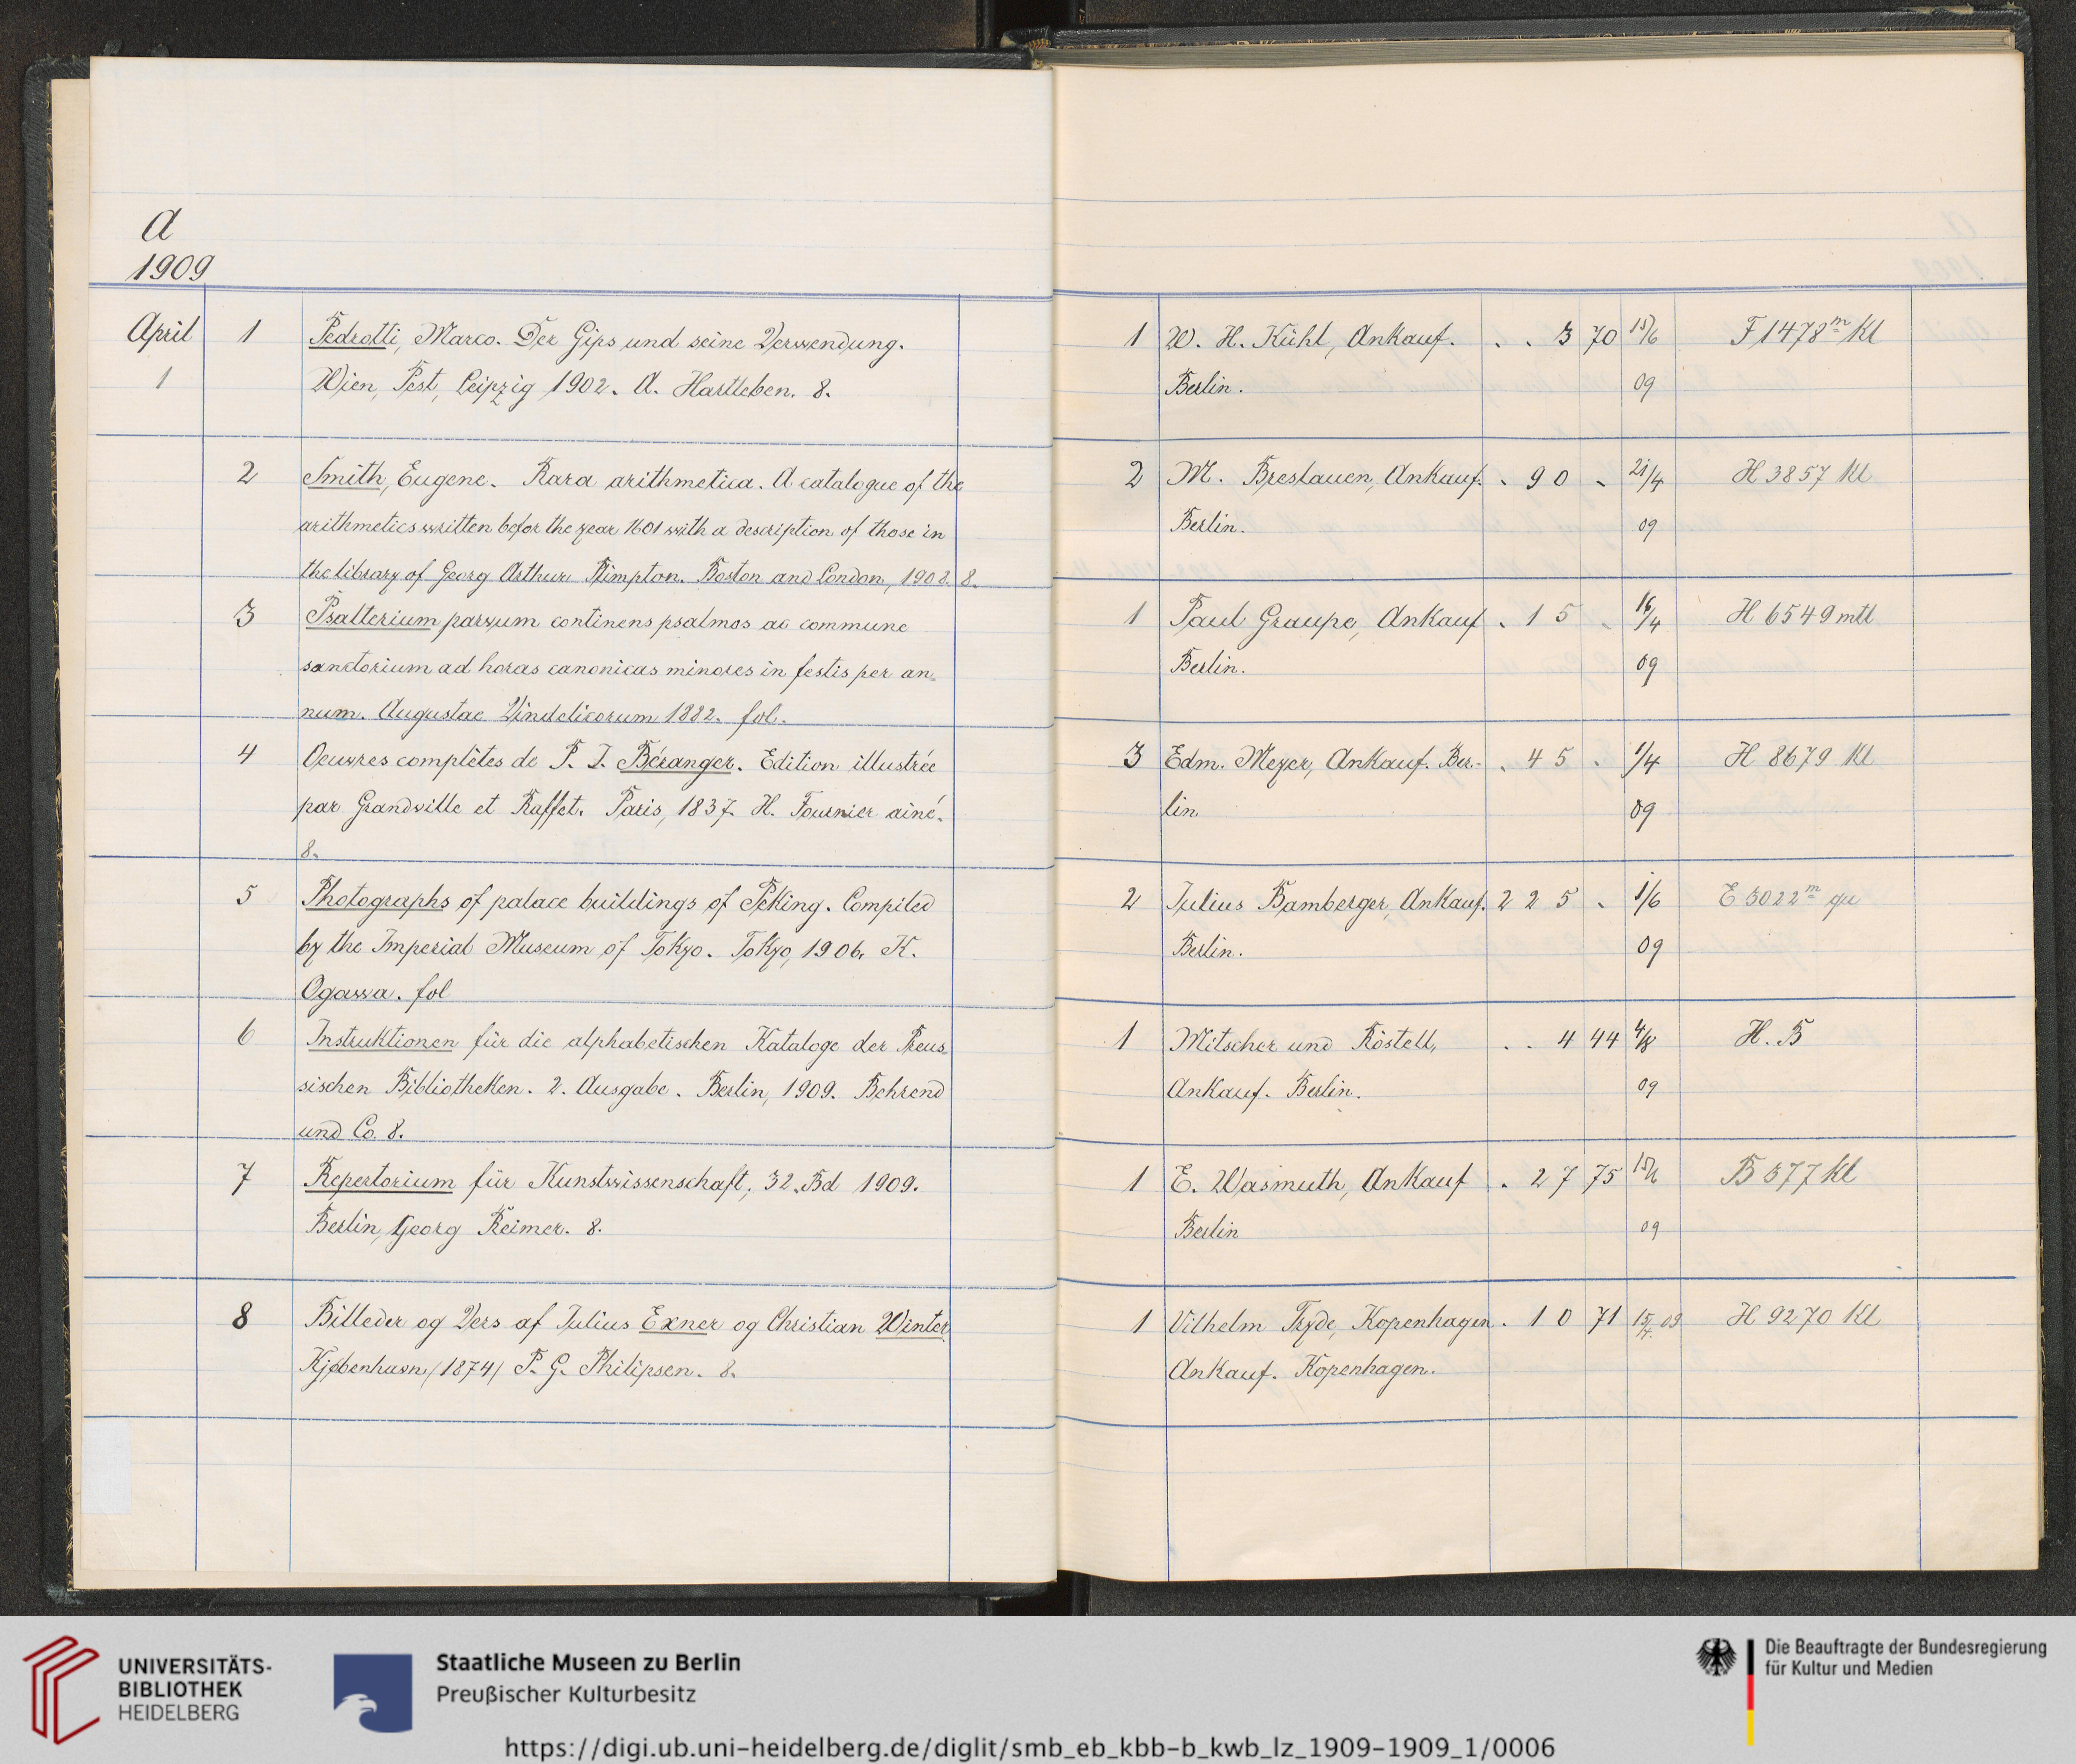 A
1909
April 1 Pedrotti, Marco. Der Gips und seine Verwendung.
1 Wien, Pest, Leipzig 1902. A. Hartleben. 8.
2 Smith, Eugene. Rara arithmetica. A catalogue of the
arithmetics written befor the year 1601 with a description of those in
the library of Georg Arthur Plimpton. Boston and London, 1908. 8.
3 Psalterium parvum continens psalmos ac commune
sanctorium ad horas canonicas minores in festis per an-
num. Augustae Vindelicorum 1882. fol.
4 Oeuvres complètes de P. J. Béranger. Edition illustrée
par Grandville et Raffet. Paris, 1837. H. Fournier ainé.
8.
5 Photographs of palace buildings of Peking. Compiled
by the Imperial Museum of Tokyo. Tokyo, 1906. K.
Ogawa. fol
6 Instruktionen für die alphabetischen Kataloge der Preus-
sischen Bibliotheken. 2. Ausgabe. Berlin, 1909. Behrend
und Co. 8.
7 Repertorium für Kunstwissenschaft, 32. Bd 1909.
Berlin, Georg Reimer. 8.
8 Billeder og Vers af Julius Exner og Christian Winter
Kjøbenhavn (1874) P. G. Philipsen. 8.
1 W. H. Kühl, Ankauf. . . 3 70 15/6 F 1478m Kl
Berlin. 09
2 M. Breslauer, Ankauf. . 90 - 21/4 H 3857 Kl
Berlin. 09
1 Paul Graupe, Ankauf . 15 - 16/4 H 6549 mtl
Berlin. 09
3 Edm. Meyer, Ankauf. Ber- . 45 - 1/4 H 8679 Kl
lin 09
2 Julius Bamberger, Ankauf. 225 - 1/6 E 3022m qu
Berlin. 09
1 Mitscher und Röstell, . . 4 44 4/8 H. B
Ankauf. Berlin. 09
1 E. Wasmuth, Ankauf . 27 75 15/6 B 577 Kl
Berlin 09
1 Vilhelm Tryde, Kopenhagen . 10 71 15/4. 09 H 9270 Kl
Ankauf. Kopenhagen.
UNIVERSITÄTS-
BIBLIOTHEK
HEIDELBERG
Staatliche Museen zu Berlin
Preußischer Kulturbesitz
Die Beauftragte der Bundesregierung
für Kultur und Medien
https://digi.ub.uni-heidelberg.de/diglit/smb_eb_kbb-b_kwb_lz_1909-1909_1/0006